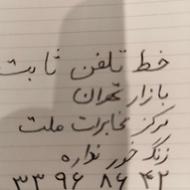 خط تلفن ثابت
بازار تهران
مرکز مخابرات ملت
زنگ خور نداره
۳۳ ۹۶ ۸۶ ۴۲